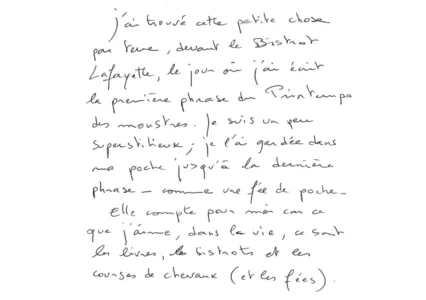 j'ai trouvé cette petite chose
par terre, devant le Bistrot
Lafayette, le jour où j'ai écrit
la première phrase du Printemps
des monstres. Je suis un peu
superstitieux ; je l'ai gardée dans
ma poche jusqu'à la dernière
phrase — comme une fée de poche —
Elle compte pour moi car ce
que j'aime, dans la vie, ce sont
les livres, les bistrots et les
courses de chevaux (et les fées).